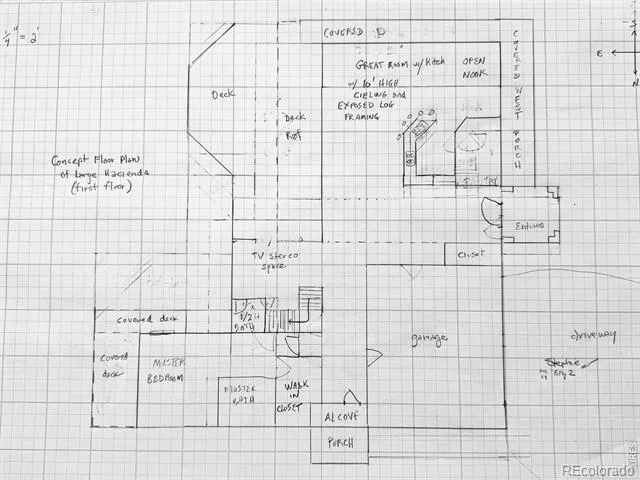 1/4" = 2'
COVERED D
GREAT ROOM w/ Kitch
w/ 16' HIGH
CIELING and
EXPOSED LOG
FRAMING
OPEN
NOOK
COVERED WEST PORCH
S
E
N
Deck
Deck
Roof
Concept Floor Plan
of Large Hacienda
(first floor)
Entrance
TV Stereo
space
Closet
BATH
covered deck
covered
deck
MASTER
BEDROOM
MASTER
BATH
WALK
IN
CLOSET
garage
driveway
ALCOVE
PORCH
REcolorado